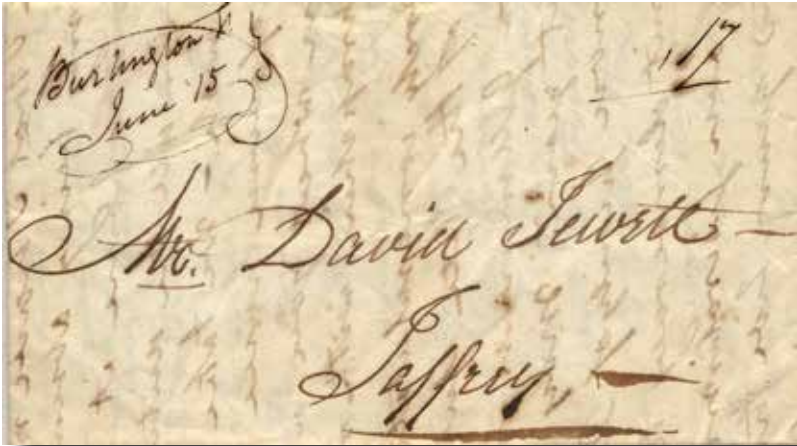 Burlington
June 15
17
Mr. David Jewett
Jaffrey